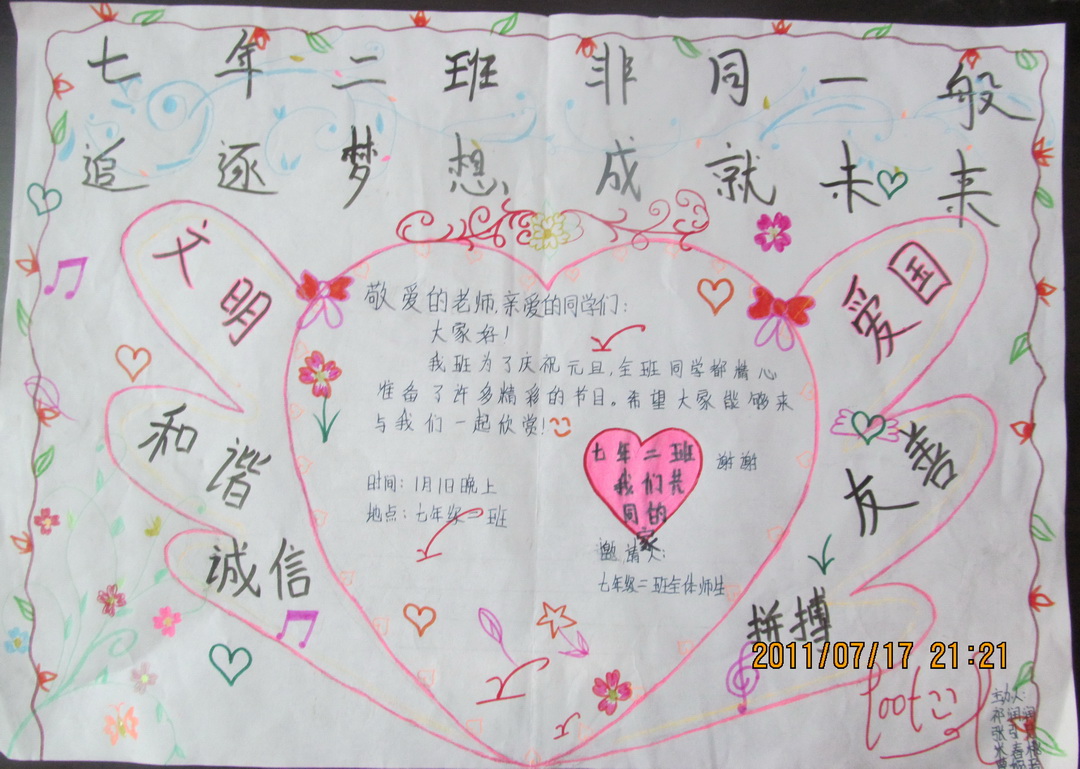 七年二班非同一般
追逐梦想成就未来
文明
爱国
和谐
友善
诚信
拼搏
敬爱的老师,亲爱的同学们:
大家好!
我班为了庆祝元旦,全班同学都精心
准备了许多精彩的节目。希望大家能够来
与我们一起欣赏!
谢谢
七年二班
我们共
同的
家
时间:1月1日晚上
地点:七年级二班
邀请人:
七年级二班全体师生
2011/07/17 21:21
主办人: